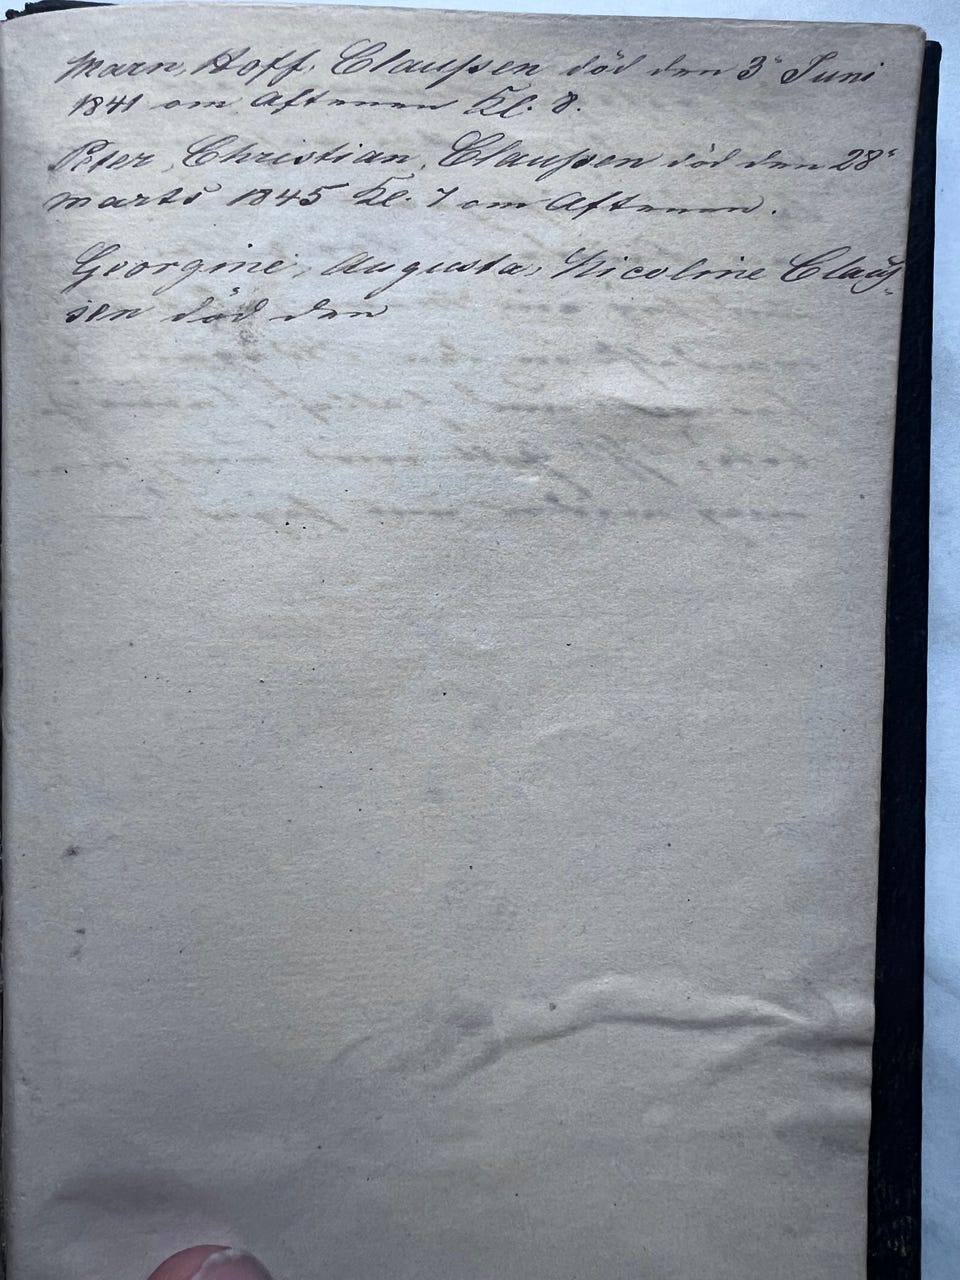 Marn, Hoff, Claußen död den 3ͤ Juni
1841 om Aftenen Kl. 8.
Peter, Christian, Claußen död den 28ͤ
Marts 1845 Kl. 7 om Aftenen.
Georgine, Augusta, Nicoline Claus-
sen död den